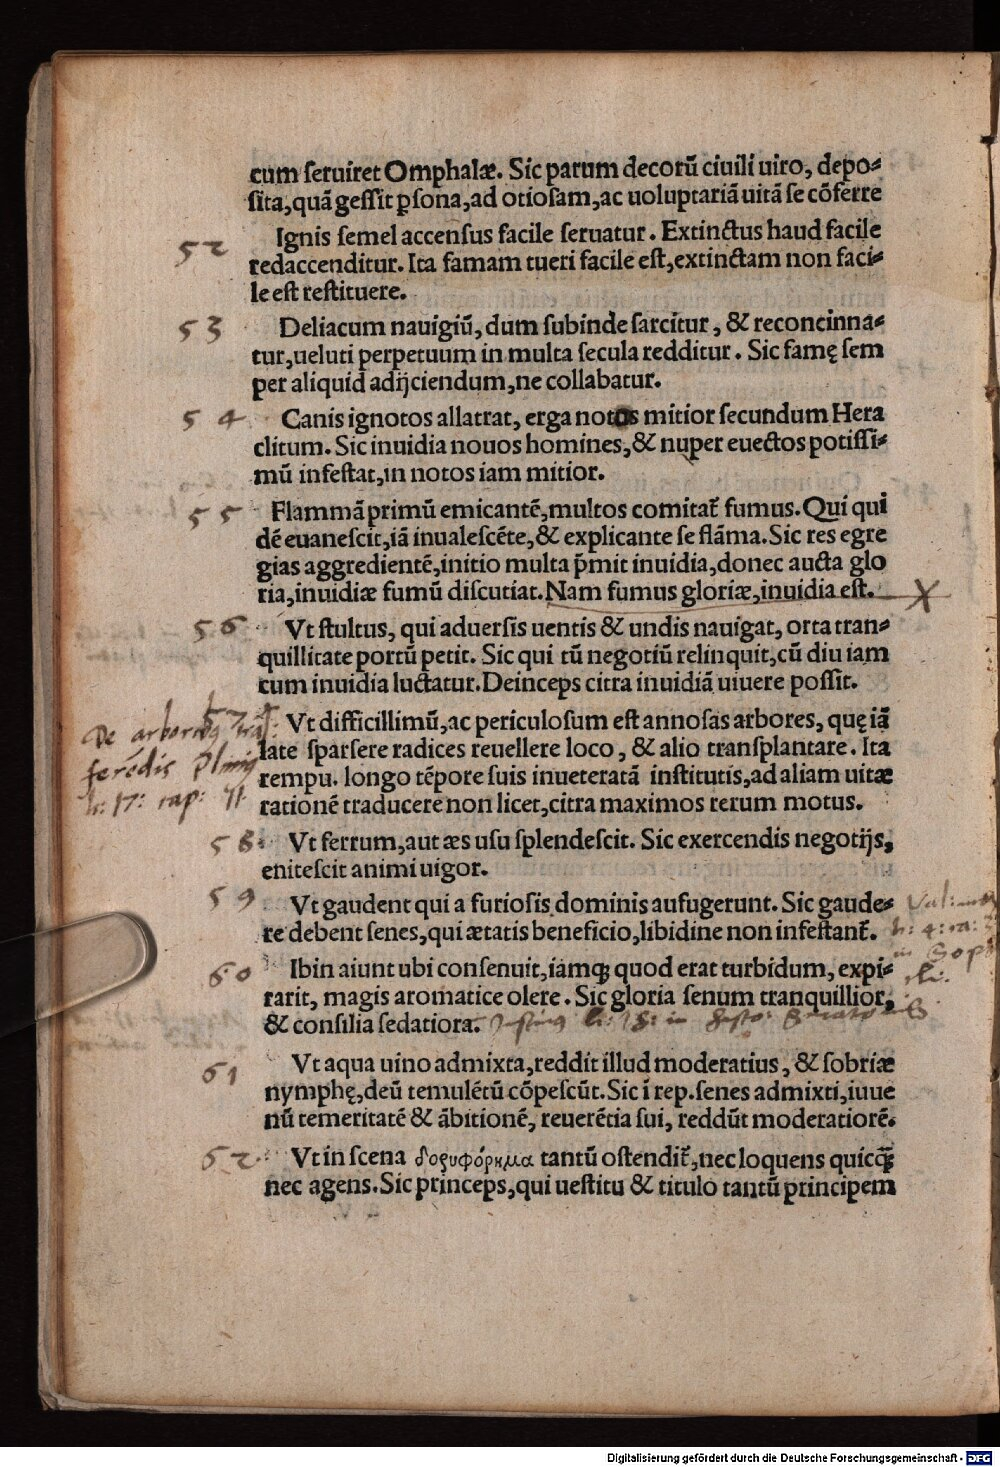 cum seruiret Omphalæ. Sic parum decorū ciuili uiro, depo⸗
sita,quā gessit ꝑsona,ad otiosam,ac uoluptariā uitā se cōferre
52 Ignis semel accensus facile seruatur. Extinctus haud facile
redaccenditur. Ita famam tueri facile est,extinctam non faci⸗
le est restituere.
53 Deliacum nauigiū, dum subinde sarcitur, & reconcinna⸗
tur,ueluti perpetuum in multa secula redditur. Sic famę sem
per aliquid adijciendum,ne collabatur.
54 Canis ignotos allatrat, erga notos mitior secundum Hera
clitum. Sic inuidia nouos homines,& nuper euectos potissi⸗
mū infestat,in notos iam mitior.
55 Flammā primū emicantē,multos comitat᷑ fumus. Qui qui
dē euanescit,iā inualescēte,& explicante se flāma. Sic res egre
gias aggredientē,initio multa p̄mit inuidia,donec aucta glo
ria,inuidiæ fumū discutiat. Nam fumus gloriæ,inuidia est. X
56 Vt stultus, qui aduersis uentis & undis nauigat, orta tran⸗
quillitate portū petit. Sic qui tū negotiū relinquit,cū diu iam
cum inuidia luctatur. Deinceps citra inuidiā uiuere possit.
57 Vt difficillimū,ac periculosum est annosas arbores, quę iā
late sparsere radices reuellere loco, & alio transplantare. Ita
rempu. longo tēpore suis inueteratā institutis,ad aliam uitæ
rationē traducere non licet,citra maximos rerum motus.
De arboribꝫ trās
ferēdis Plinius
li: 17: cap: 11
58 Vt ferrum,aut æs usu splendescit. Sic exercendis negotijs,
enitescit animi uigor.
59 Vt gaudent qui a furiosis dominis aufugerunt. Sic gaude⸗
re debent senes,qui ætatis beneficio,libidine non infestant᷑.
Val:
li: 4: ca: 3
in Sopho
cli:
60 Ibin aiunt ubi consenuit,iamqꝫ quod erat turbidum, expi⸗
rarit, magis aromatice olere. Sic gloria senum tranquillior,
& consilia sedatiora. Justinus li: 18: in
61 Vt aqua uino admixta,reddit illud moderatius, & sobriæ
nymphę,deū temulētū cōpescūt. Sic ī rep.senes admixti,iuue
nū temeritatē & ābitionē, reuerētia sui, reddūt moderatiorē.
62 Vt in scena δορυφόρημα tantū ostendit᷑,nec loquens quicqꝫ̄
nec agens. Sic princeps,qui uestitu & titulo tantū principem
Digitalisierung gefördert durch die Deutsche Forschungsgemeinschaft - DFG